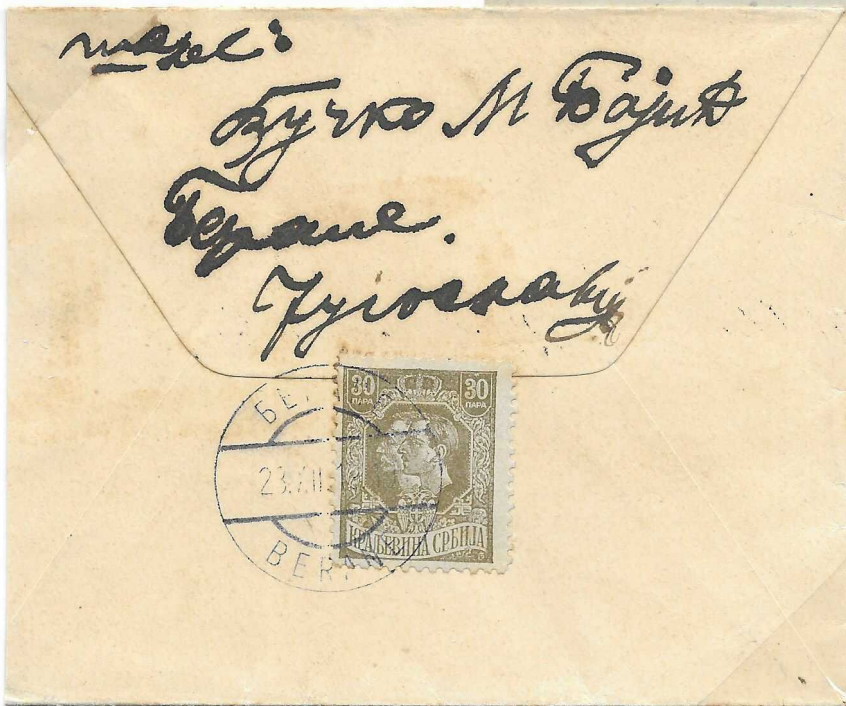 шаљe:
Вучко М Бојић
Беране.
Југославија
30 30
ПАРА ПАРА
КРАЉЕВИНА СРБИЈА
23.XII.
BERA